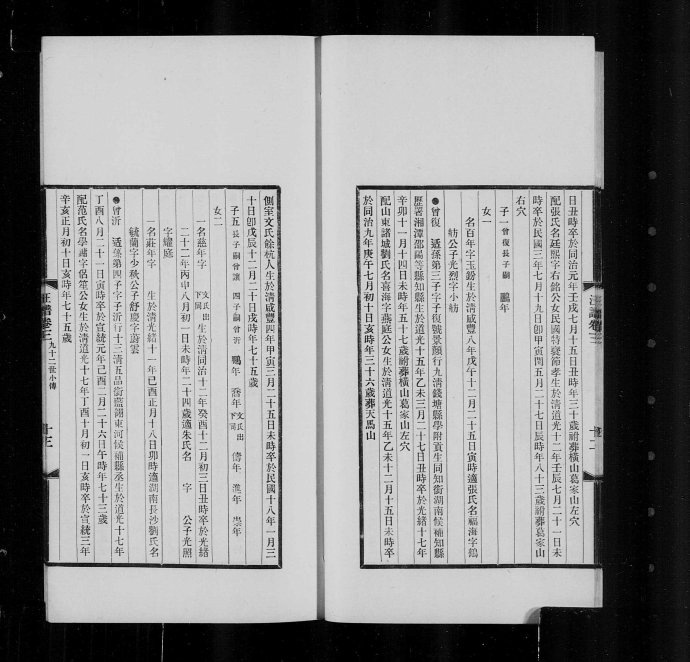 日丑時卒於同治元年壬戌七月十五日丑時年三十歲祔葬橫山葛家山左穴
配張氏名廷熙字右銘公女民國特褒節孝生於清道光十二年壬辰七月二十一日未
時卒於民國三年七月十九日卽甲寅閏五月二十七日辰時年八十三歲祔葬葛家山
右穴
子一 曾復長子嗣 鵬年
女一
名百年字玉鈖生於清咸豐八年戊午十二月二十五日寅時適張氏名福海字鶴
舫公子光烈字小舫
曾復 适孫第三子字子復號景顏行九清錢塘縣學附貢生同知銜湖南候補知縣
歷署湘潭邵陽等縣知縣生於道光十五年乙未三月二十七日丑時卒於光緒十七年
辛卯十一月十四日未時年五十七歲葬橫山葛家山左穴
配山東諸城劉氏名喜海字燕庭公女生於清道光十五年乙未十二月十五日未時卒
於同治九年庚午七月初十日亥時年三十六歲葬天馬山
汪譜卷三
側室文氏餘杭人生於清咸豐四年甲寅三月二十五日未時卒於民國十八年一月三
十日卽戊辰十二月二十日戌時年七十五歲
子五 長子嗣曾讓 四子嗣曾沂 鷃年 喬年 文氏出下同 儔年 濰年 崇年
女二
一名慈年字 文氏出下同 生於清同治十二年癸酉十二月初三日丑時卒於光緒
二十二年丙申八月初一日未時年二十四歲適朱氏名 字 公子光照
字耀庭
一名莊年字 生於清光緒十一年己酉正月十八日卯時適湖南長沙劉氏名
毓蘭字少秋公子舒慶字蔚雲
曾沂 适孫第四子字子沂行十三清五品銜藍翎東河候補縣丞生於道光十七年
丁酉八月二十一日寅時卒於宣統元年己酉二月二十六日午時年七十三歲
配范氏名學譓字侶笙公女生於清道光十七年丁酉十月初一日亥時卒於宣統三年
辛亥正月初十日亥時年七十五歲
汪譜卷三 九十二世小傳 十三